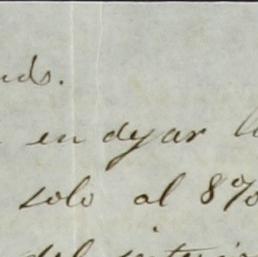 nds.
en dejar l
solo al 8%
del interior